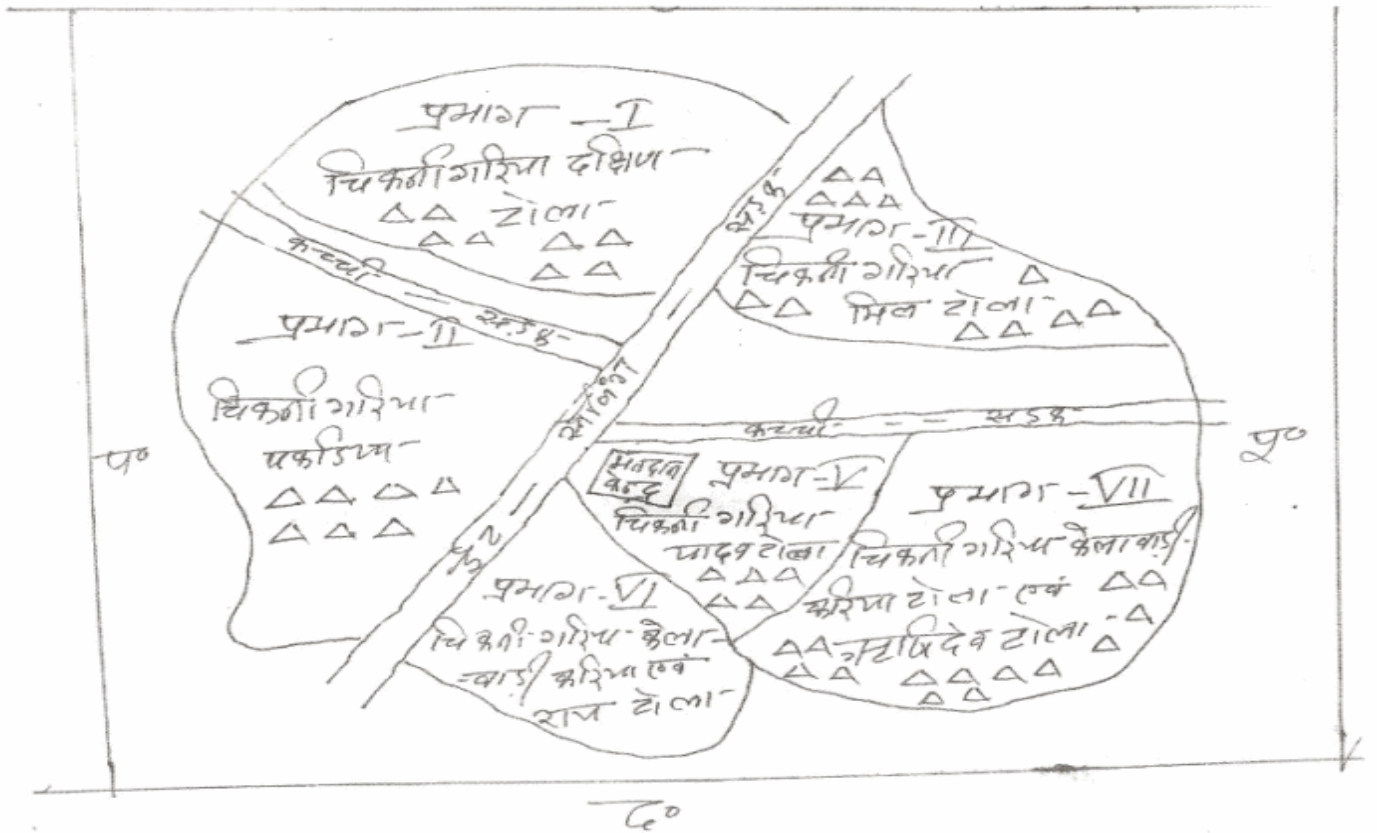 प्रभाग - I
चिकनी गरिया दक्षिण
टोला
कच्ची सड़क
प्रभाग - II
चिकनी गरिया
पकड़िया
सड़क
प्रभाग - III
चिकनी गरिया
मिल टोला
कच्ची सड़क
प०
पू०
मतदान
केन्द्र
प्रभाग - V
चिकनी गरिया
यादव टोला
प्रभाग - VII
चिकनी गरिया कैलाबाड़ी
करिया टोला एवं
ऋषिदेव टोला
प्रभाग - VI
चिकनी गरिया कैला
बाड़ी करिया एवं
राय टोला
द०